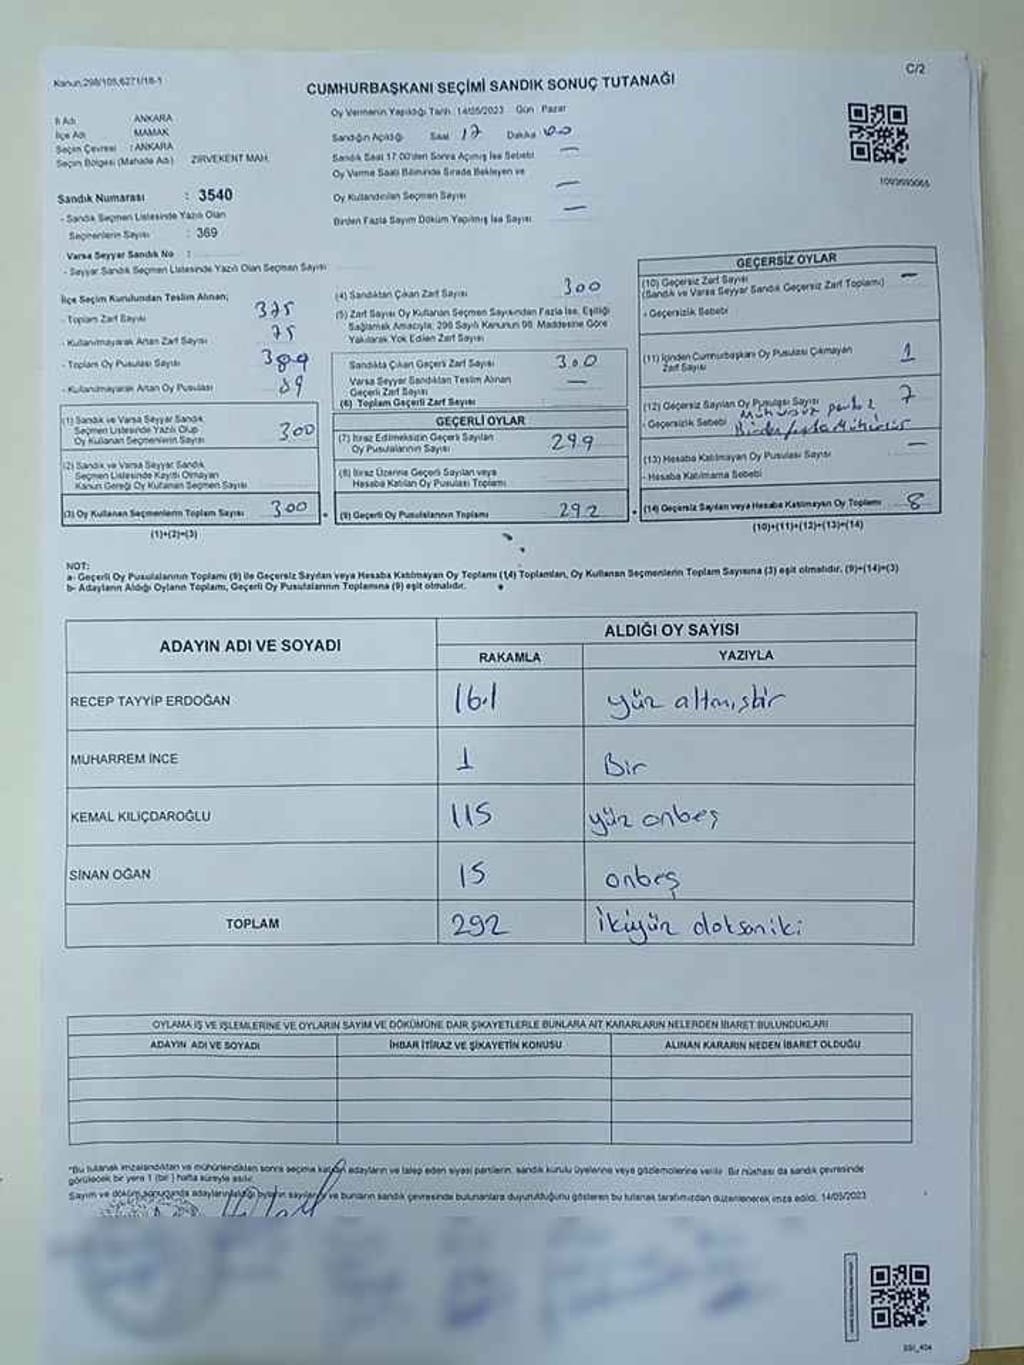 Kanun:298/105,6271/18-1
C/2
CUMHURBAŞKANI SEÇİMİ SANDIK SONUÇ TUTANAĞI
İl Adı ANKARA
İlçe Adı MAMAK
Seçim Çevresi : ANKARA
Seçim Bölgesi (Mahalle Adı) ZİRVEKENT MAH.
Sandık Numarası : 3540
- Sandık Seçmen Listesinde Yazılı Olan
Seçmenlerin Sayısı : 369
Varsa Seyyar Sandık No :
- Seyyar Sandık Seçmen Listesinde Yazılı Olan Seçmen Sayısı
Oy Vermenin Yapıldığı Tarih 14/05/2023 Gün Pazar
Sandığın Açıldığı Saat 17 Dakika 00
Sandık Saat 17:00'den Sonra Açılmış İse Sebebi —
Oy Verme Saati Bitiminde Sırada Bekleyen ve
Oy Kullandırılan Seçmen Sayısı —
Birden Fazla Sayım Döküm Yapılmış İse Sayısı —
İlçe Seçim Kurulundan Teslim Alınan;
- Toplam Zarf Sayısı 375
- Kullanılmayarak Artan Zarf Sayısı 75
- Toplam Oy Pusulası Sayısı 389
- Kullanılmayarak Artan Oy Pusulası 89
(1) Sandık ve Varsa Seyyar Sandık
Seçmen Listesinde Yazılı Olup
Oy Kullanan Seçmenlerin Sayısı 300
(2) Sandık ve Varsa Seyyar Sandık
Seçmen Listesinde Kayıtlı Olmayan
Kanun Gereği Oy Kullanan Seçmen Sayısı
(3) Oy Kullanan Seçmenlerin Toplam Sayısı 300
(1)+(2)=(3)
(4) Sandıktan Çıkan Zarf Sayısı 300
(5) Zarf Sayısı Oy Kullanan Seçmen Sayısından Fazla İse, Eşitliği
Sağlamak Amacıyla, 298 Sayılı Kanunun 98. Maddesine Göre
Yakılarak Yok Edilen Zarf Sayısı
Sandıkta Çıkan Geçerli Zarf Sayısı 300
Varsa Seyyar Sandıktan Teslim Alınan
Geçerli Zarf Sayısı —
(6) Toplam Geçerli Zarf Sayısı
GEÇERLİ OYLAR
(7) İtiraz Edilmeksizin Geçerli Sayılan
Oy Pusulalarının Sayısı 299
(8) İtiraz Üzerine Geçerli Sayılan veya
Hesaba Katılan Oy Pusulası Toplamı
(9) Geçerli Oy Pusulalarının Toplamı 292
GEÇERSİZ OYLAR
(10) Geçersiz Zarf Sayısı —
(Sandık ve Varsa Seyyar Sandık Geçersiz Zarf Toplamı)
- Geçersizlik Sebebi
(11) İçinden Cumhurbaşkanı Oy Pusulası Çıkmayan
Zarf Sayısı 1
(12) Geçersiz Sayılan Oy Pusulası Sayısı 7
- Geçersizlik Sebebi
(13) Hesaba Katılmayan Oy Pusulası Sayısı —
- Hesaba Katılmama Sebebi
(14) Geçersiz Sayılan veya Hesaba Katılmayan Oy Toplamı 8
(10)+(11)+(12)+(13)=(14)
NOT:
a- Geçerli Oy Pusulalarının Toplamı (9) ile Geçersiz Sayılan veya Hesaba Katılmayan Oy Toplamı (14) Toplamları, Oy Kullanan Seçmenlerin Toplam Sayısına (3) eşit olmalıdır. (9)+(14)=(3)
b- Adayların Aldığı Oyların Toplamı, Geçerli Oy Pusulalarının Toplamına (9) eşit olmalıdır.
ADAYIN ADI VE SOYADI
ALDIĞI OY SAYISI
RAKAMLA YAZIYLA
RECEP TAYYİP ERDOĞAN 161 yüz altmışbir
MUHARREM İNCE 1 Bir
KEMAL KILIÇDAROĞLU 115 yüz onbeş
SİNAN OĞAN 15 onbeş
TOPLAM 292 ikiyüz doksaniki
OYLAMA İŞ VE İŞLEMLERİNE VE OYLARIN SAYIM VE DÖKÜMÜNE DAİR ŞİKAYETLERLE BUNLARA AİT KARARLARIN NELERDEN İBARET BULUNDUKLARI
ADAYIN ADI VE SOYADI İHBAR İTİRAZ VE ŞİKAYETİN KONUSU ALINAN KARARIN NEDEN İBARET OLDUĞU
"Bu tutanak imzalandıktan ve mühürlendikten sonra seçime katılan adayların ve talep eden siyasi partilerin, sandık kurulu üyelerine veya gözlemcilerine verilir. Bir nüshası da sandık çevresinde
görülecek bir yere 1 (bir) hafta süreyle asılır.
Sayım ve döküm sonucunda adayların aldığı oyların sayılarını ve bunların sandık çevresinde bulunanlara duyurulduğunu gösteren bu tutanak tarafımızdan düzenlenerek imza edildi. 14/05/2023